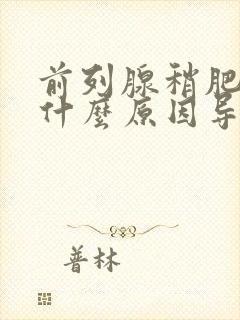 前列腺稍肥
什麼原因导
普林